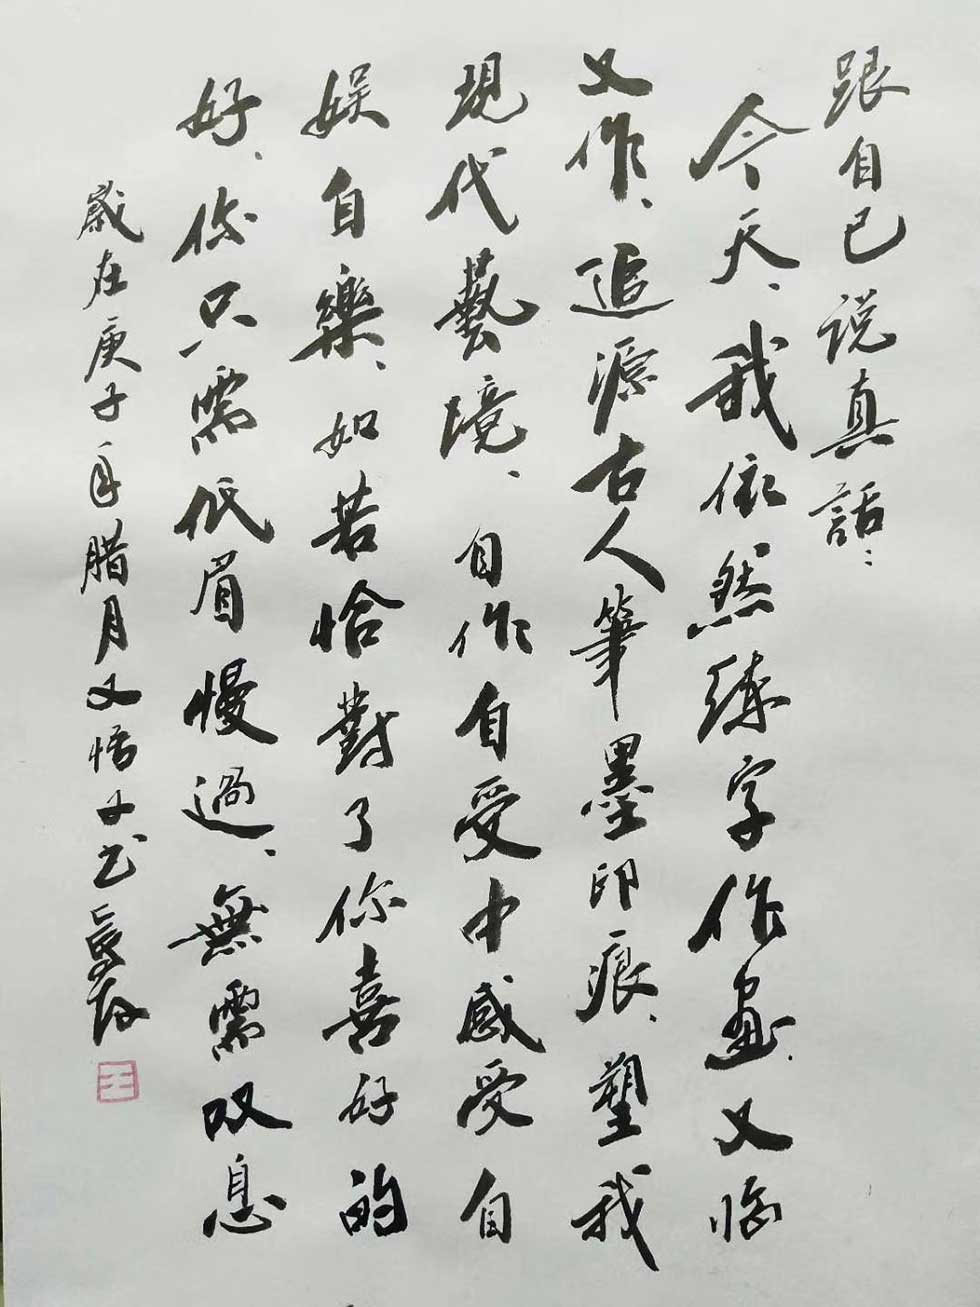 跟自己说真話：
今天、我依然練字作画、又临
又作、追源古人筆墨印痕、塑我
現代藝境、自作自受中感受自
娱自樂、如若恰對了你喜好的
好、你只需低眉慢過、無需叹息
歲在庚子年腊月又悟
王